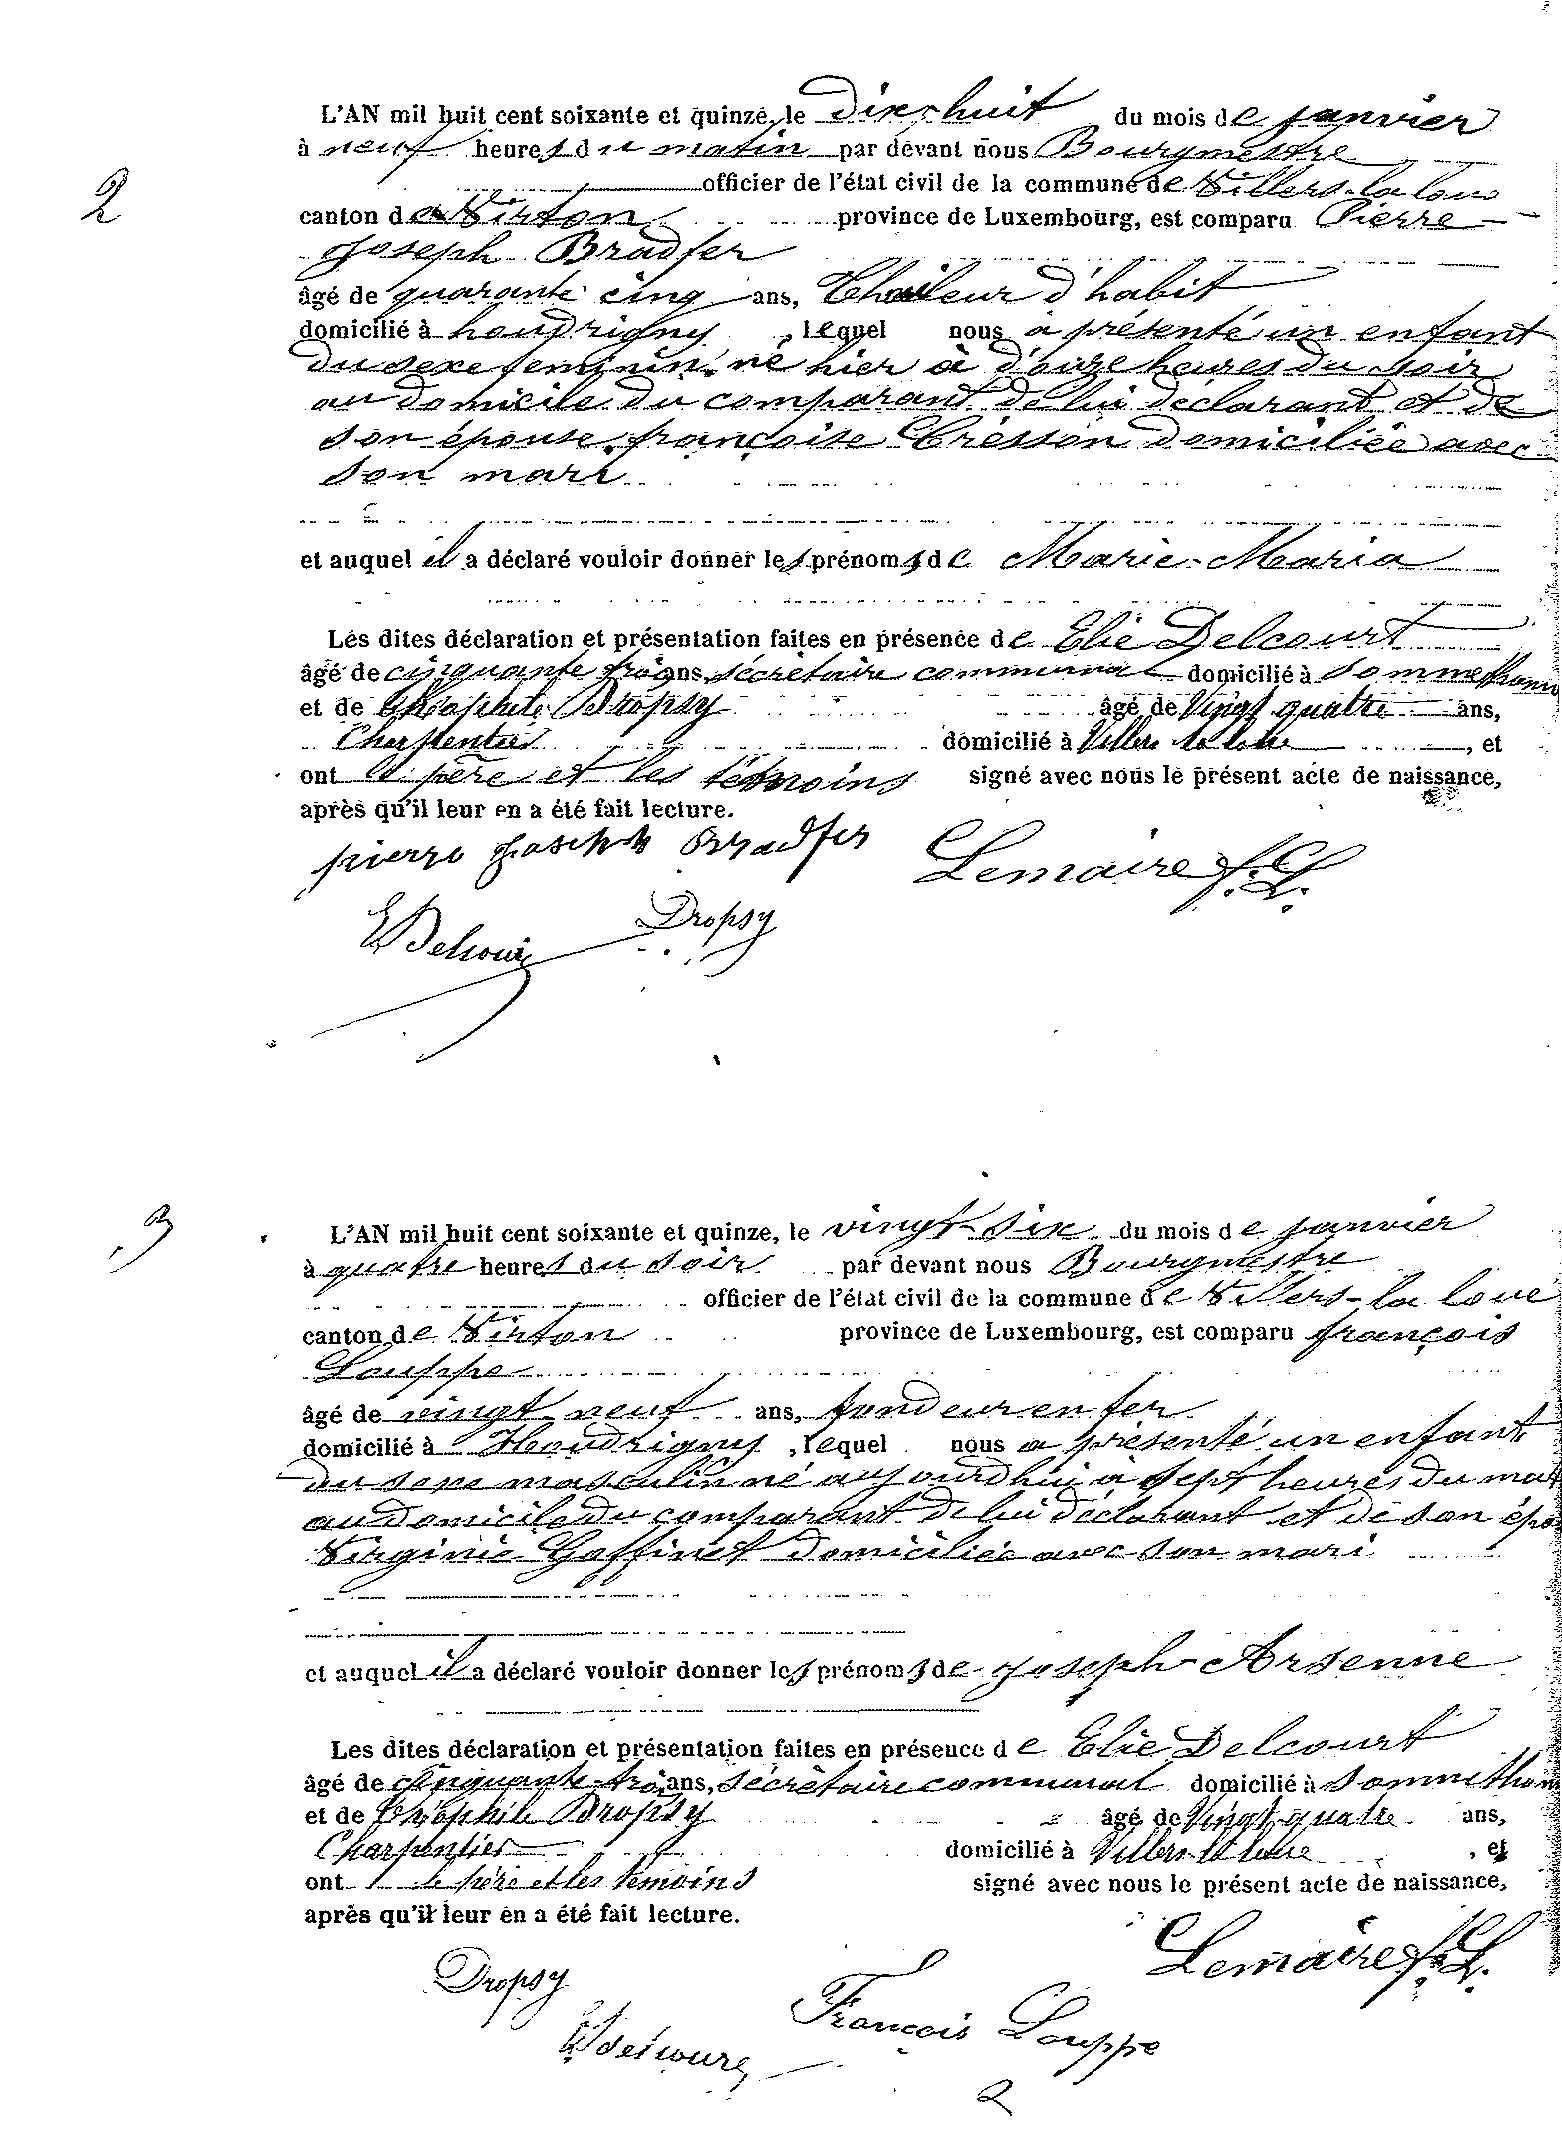 2
L'AN mil huit cent soixante et quinze, le dix-huit du mois de janvier
à neuf heures du matin par devant nous Bourgmestre
officier de l'état civil de la commune de Villers-la loue
canton de Virton province de Luxembourg, est comparu Pierre
Joseph Bradfer
âgé de quarante cinq ans, d'habit
domicilié à houdrigny, lequel nous a présenté un enfant
du sexe feminin né hier à d'onze heures du soir
au domicile du comparant de lui déclarant et de
son épouse françoise Cresson domiciliée avec
son mari
et auquel il a déclaré vouloir donner les prénoms de Marie-Maria
Les dites déclaration et présentation faites en présence de Elie Delcourt
âgé de cinquante trois ans, sécrètaire communal domicilié à Sommethonne
et de Théophile Dropsy âgé de Vingt quatre ans,
Charpentier domicilié à Villers la loue, et
ont le père et les témoins signé avec nous le présent acte de naissance,
après qu'il leur en a été fait lecture.
pierre joseph Bradfer Lemaire f.L.
E Delcour Dropsy
3
L'AN mil huit cent soixante et quinze, le vingt-six du mois de janvier
à quatre heures du soir par devant nous Bourgmestre
officier de l'état civil de la commune de Villers-la loue
canton de Virton province de Luxembourg, est comparu françois
Louppe
âgé de vingt neuf ans, fondeur en fer
domicilié à Houdrigny, lequel nous a présenté un enfant
du sexe masculin né aujourdhui à sept heures du mat
au domicile du comparant de lui déclarant et de son épou
Virginie Goffinet domiciliée avec son mari
et auquel il a déclaré vouloir donner les prénoms de Joseph-Arsenne
Les dites déclaration et présentation faites en présence de Elie Delcourt
âgé de cinquante trois ans, sécrètaire communal domicilié à Sommethon
et de Théophile Dropsy âgé de Vingt quatre ans,
Charpentier domicilié à Villers-la loue, et
ont le père et les témoins signé avec nous le présent acte de naissance,
après qu'il leur en a été fait lecture.
Lemaire f.L.
Dropsy
François Louppe
E delcourt
2